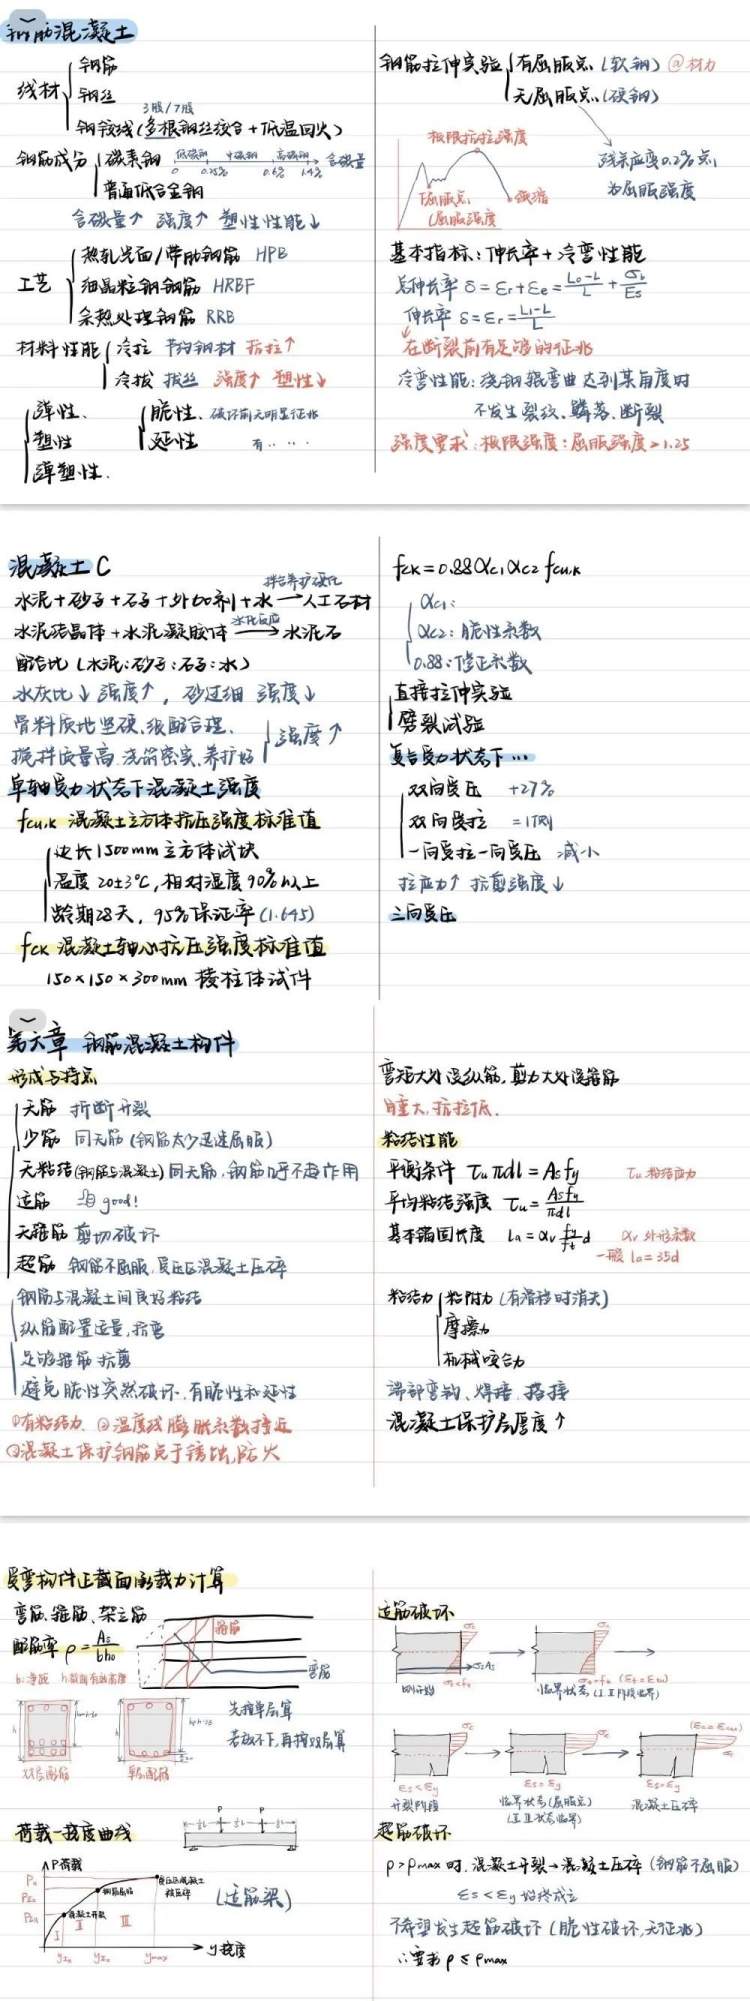 钢筋混凝土
线材
钢筋
钢丝
3股/7股
钢绞线(多根钢丝绞合+低温回火)
钢筋成分
碳素钢 低碳钢 中碳钢 高碳钢 含碳量
0 0.25% 0.6% 1.4%
普通低合金钢
含碳量↑ 强度↑ 塑性性能↓
工艺
热轧光面/带肋钢筋 HPB
细晶粒钢钢筋 HRBF
余热处理钢筋 RRB
材料性能
冷拉 节约钢材 抗拉↑
冷拔 拔丝 强度↑ 塑性↓
弹性、
塑性
弹塑性.
脆性、破坏前无明显征兆
延性 有....
钢筋拉伸实验
有屈服点(软钢) @材力
无屈服点(硬钢)
残余应变0.2%点
为屈服强度
极限抗拉强度
下屈服点
(屈服强度
基本指标:伸长率+冷弯性能
总伸长率 δ=εr+εe=L₀-L/L+σb/Es
伸长率 δ=εr=L₁-L/L
在断裂前有足够的征兆
冷弯性能:绕钢辊弯曲达到某角度时
不发生裂纹、鳞落、断裂
强度要求:极限强度:屈服强度>1.25
混凝土C
水泥+砂子+石子+外加剂+水 拌合养护硬化→人工石材
水泥结晶体+水泥凝胶体 水化反应→水泥石
配合比(水泥:砂子:石子:水)
水灰比↓ 强度↑, 砂过细 强度↓
骨料质地坚硬、级配合理、
搅拌质量高、浇筑密实、养护好 强度↑
单轴受力状态下混凝土强度
fcu,k 混凝土立方体抗压强度标准值
边长1500mm立方体试块
温度20±3℃,相对湿度90%以上
龄期28天, 95%保证率(1.645)
fck 混凝土轴心抗压强度标准值
150×150×300mm 棱柱体试件
fck=0.88αc1αc2fcu,k
αc1:
αc2:脆性系数
0.88:修正系数
直接拉伸实验
劈裂试验
复合受力状态下…
双向受压 +27%
双向受拉 =1例
一向受拉一向受压 减小
拉应力↑ 抗剪强度↓
三向受压
第六章 钢筋混凝土构件
形成与特点
无筋 折断开裂
少筋 同无筋(钢筋太少迅速屈服)
无粘结(钢筋与混凝土)同无筋,钢筋几乎不起作用
适筋 good!
无箍筋 剪切破坏
超筋 钢筋不屈服,受压区混凝土压碎
钢筋与混凝土间良好粘结
纵筋配置适量,抗弯
足够箍筋 抗剪
避免脆性突然破坏,有脆性和延性
①有粘结力、②温度线膨胀系数接近
③混凝土保护钢筋免于锈蚀,防火
弯矩大处设纵筋,剪力大处设箍筋
自重大,抗拉低.
粘结性能
平衡条件 τuπdl=Asfy τu 粘结应力
平均粘结强度 τu=Asfy/πdl
基本锚固长度 la=αv fy/ft d αv 外形系数
一般 la=35d
粘结力
粘附力(有滑移时消失)
摩擦力
机械咬合力
端部弯钩、焊接、搭接
混凝土保护层厚度↑
受弯构件正截面承载力计算
弯筋、箍筋、架立筋
配筋率 ρ=As/bh₀
箍筋
弯筋
双层配筋
单层配筋
先按单层算
若放不下,再按双层算
荷载-挠度曲线
P荷载
受压区混凝土
被压碎
钢筋屈服
混凝土开裂
I II III
ymax
y挠度
(适筋梁)
适筋破坏
刚开始
临界状态(I、II阶段临界)
开裂阶段 εs<εy
临界状态(屈服点) εs=εy
混凝土压碎
超筋破坏
ρ>ρmax时,混凝土开裂→混凝土压碎(钢筋不屈服)
εs<εy 始终成立
不希望发生超筋破坏(脆性破坏,无征兆)
∴要求ρ≤ρmax